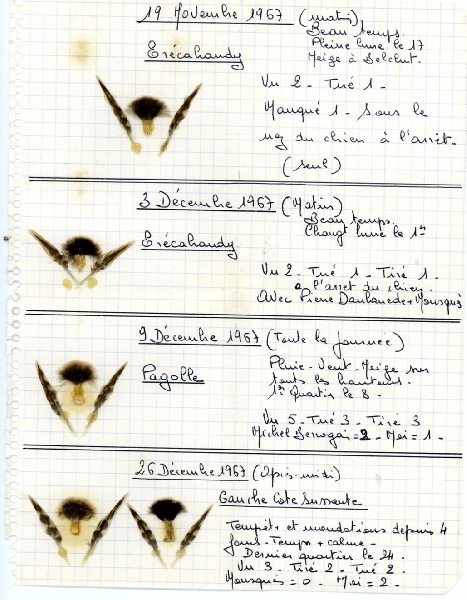 19 Novembre 1967 (matin)
Beau temps.
Pleine lune le 17
Neige à Belchut.
Erécahandy
Vu 2 - Tué 1 -
Manqué 1 - Sous le
nez du chien à l'arrêt -
(seul)
3 Décembre 1967 (Matin)
Beau temps.
Changt lune le 1er
Erécahandy
Vu 2 - Tué 1 - Tiré 1 -
à l'arret du chien.
Avec Pierre
9 Décembre 1967 (Toute la journée)
Pluie - Vent - Neige sur
touts les hauteurs -
1er Quartier le 8 -
Pagolle
Vu 5 - Tué 3 - Tiré 3
Michel = 2 - Moi = 1 -
26 Décembre 1967 (Après-midi)
Gauche Cote Sussaute
Tempêt+ et inondations depuis 4
jours - Temps + calme -
Dernier quartier le 24 -
Vu 3 - Tiré 2 - Tué 2 -
Mousquès = 0 - Moi = 2 -